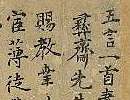 五言一首書
彝齋先生
賜教業
宦薄徒